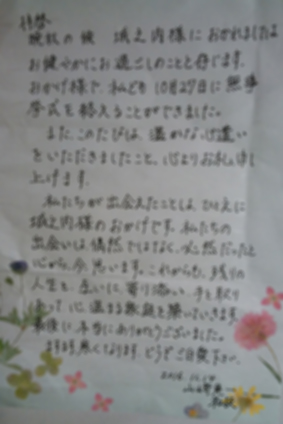 拝啓
晩秋の候 垣之内様に おかれましては
お健やかにお過ごしのことと存じます。
おかげ様で、私ども 10月27日に 無事
挙式を終えることができました。
また、このたびは、温かな心遣い
をいただきましたこと、心よりお礼申し
上げます。
私たちが出会えたことは、ひとえに
垣之内様のおかげです。私たちの
出会いは、偶然ではなく、必然だったと
心から、今、思います。これからも、残りの
人生を、互いに、寄り添い、手を取り
あって、心温まる家庭を築いていきます。
最後に、本当にありがとうございました。
ますます寒くなります、どうぞご自愛下さい。